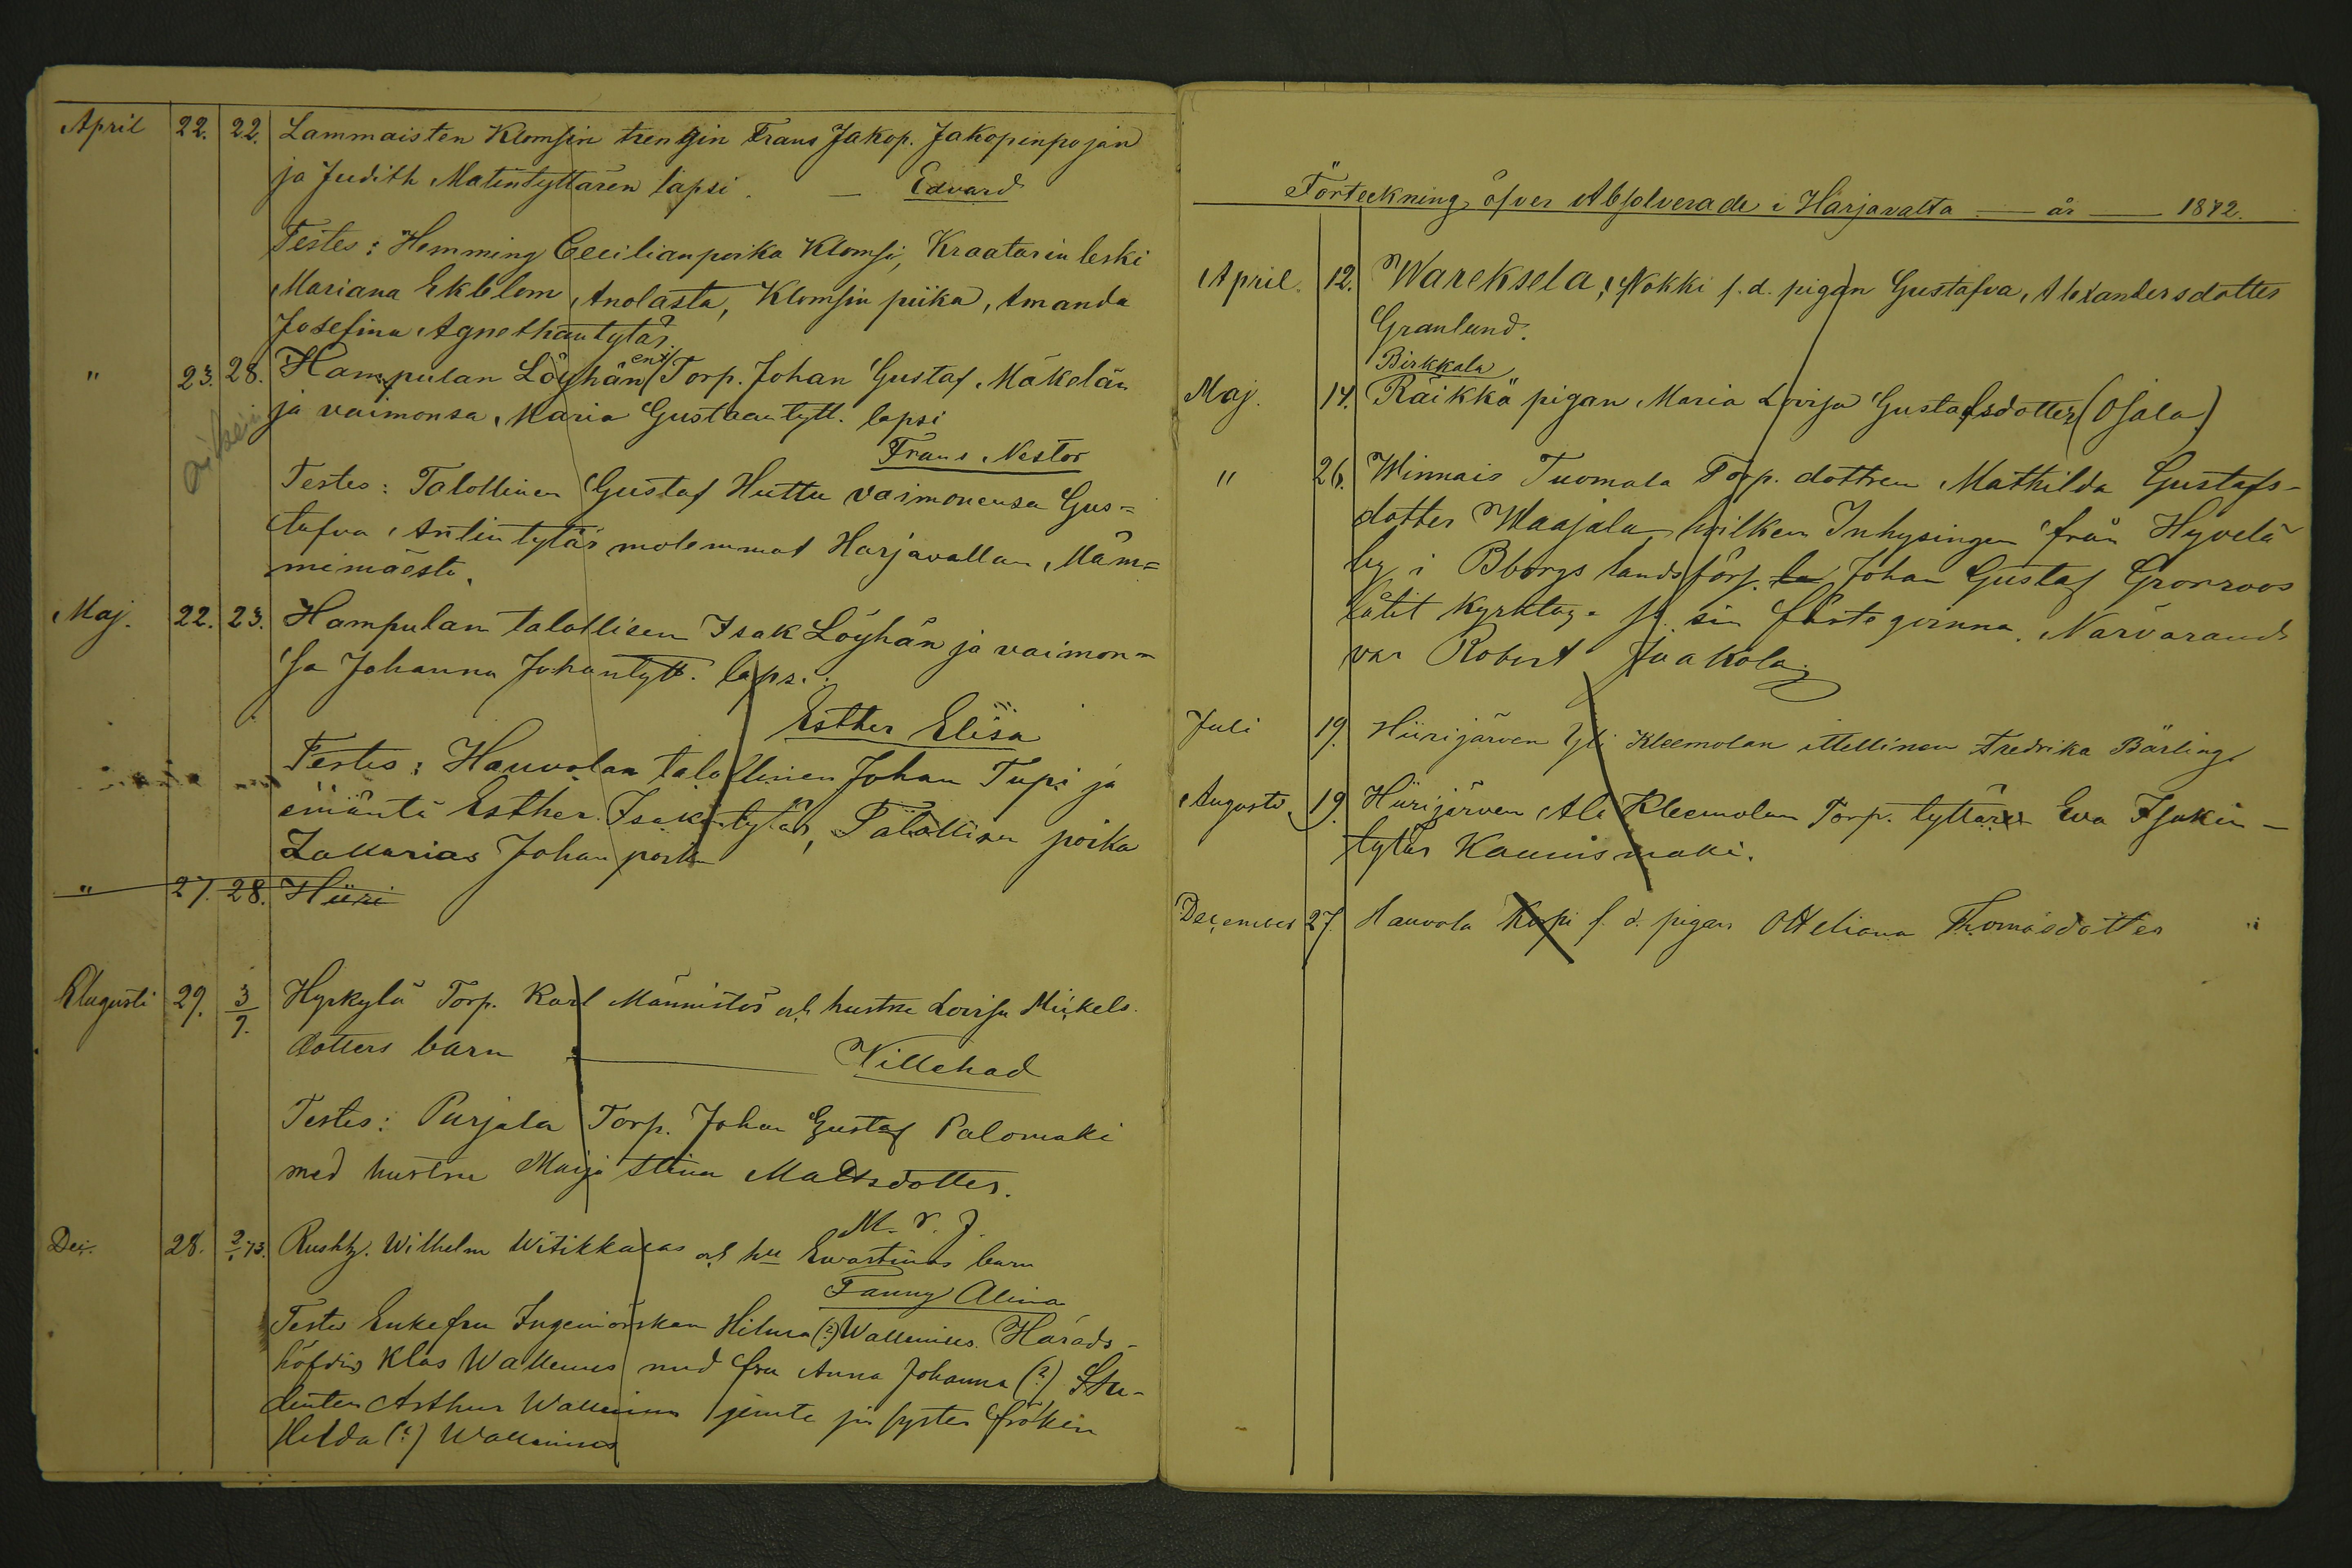 April 22. 22. Lammaisten Klomsin trengin Frans Jakop. Jakopinpojan
ja Judith Matintyttären lapsi. — Edvard
Testes: Hemming Cecilianpoika Klomsi, Kraatarin leski
Mariana Ekblom Anolasta, Klomsin piika, Amanda
Josefina Agnethantytär
" 23. 28. Hampulan Löyhän Torp. Johan Gustaf Mäkelän
ja vaimonsa Maria Gustaantytt. lapsi
Frans Nestor
Testes: Talollinen Gustaf Huttu vaimonensa Gus=
tafva Antintytär molemmat Harjavallan Mäm=
mimäestä.
Maj. 22. 23. Hampulan talollisen Isak Löyhän ja vaimon=
sa Johanna Juhantytt. lapsi.
Esther Elisa
Testes: Hauvolan talollinen Johan Tupi ja
emäntä Esther Isakintytär, Talollisen poika
Zakarias Johan poika
" 27. 28. Hiiri
Augusti 29. 3/9. Hyrkylä Torp. Karl Männistös och hustru Lovisa Mickels
dotters barn — Villehad
Testes: Purjala Torp. Johan Gustaf Palomäki
med hustru Maja Stina Mattsdotter.
M. v. J.
Dec. 28. 2/1 73. Rusth. Wilhelm Witikkalas och hu Evastinas barn
Fanny Alina
Testes Enkefru Ingeniörskan Hilma (?) Wallenius. Härads-
höfding Klas Wallenius med fru Anna Johanna (?) Stu-
denten Arthur Wallenius jemte sin syster fröken
Helda (?) Wallenius
Förteckning öfver Absolverade i Harjavalta — år — 1872.
April. 12. Wareksela, Nokki f.d. pigan Gustafva Alexandersdotter
Granlund.
Birkkala
Maj. 14. Räikkä pigan Maria Lovisa Gustafsdotter (Ojala)
" 26. Winnais Tuomola Torp. dottren Mathilda Gustafs-
dotter Waajala hvilken Inhysingen från Hyvelä
by i Bborgs landsförs. Johan Gustaf Grönroos
låtit kyrktaga sin fästeqvinna. Närvarande
var Robert Jaakola
Juli 19. Hiirijärven Yli Kleemolan ittellinen Fredrika Bärling
Augusti 19. Hiirijärven Ali Kleemolan Torp. tyttären Eva Isakin-
tytär Kaunismäki.
December 27. Hauvola Kupi f.d. pigan Otteliana Thomasdotter